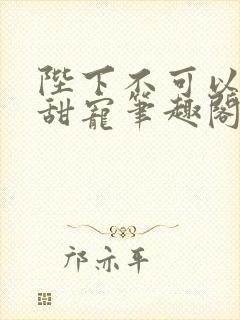 陛下不可以
甜寵筆趣閣
邝亦平